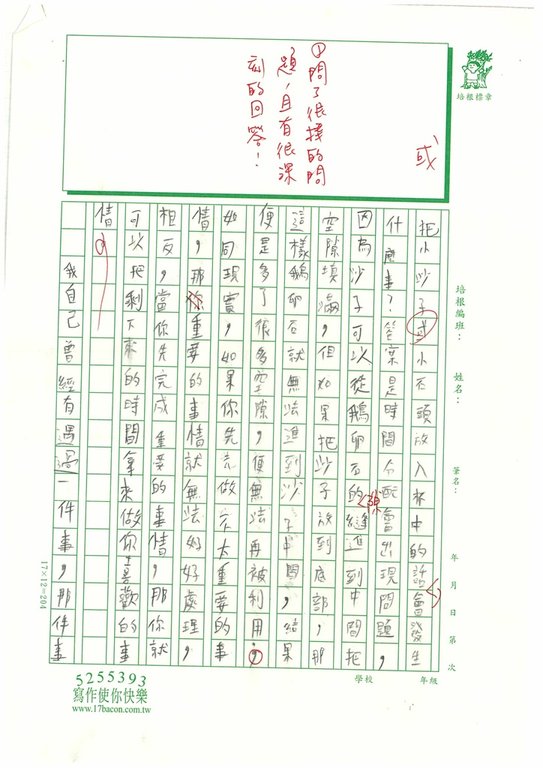 培根標章
或
①問了很棒的問
題,且有很深
刻的回答!
培根編班:
姓名:
筆名:
年 月 日 第 次
把小沙子或小石頭放入杯中的話會發生
什麼事?答案是時間分配會出現問題,
因為沙子可以從鵝卵石的縫進到中間把
空隙填滿,但如果把沙子放到底部,那
這樣鵝卵石就無法進到沙子中間,結果
便是多了很多空隙,便無法再被利用,
如同現實,如果你先去做不太重要的事
情,那你重要的事情就無法好好處理,
相反,當你先完成重要的事情,那你就
可以把剩下來的時間拿來做你喜歡的事
情。
我自己曾經有遇過一件事,那件事
17×12=204
學校
年級
5255393
寫作使你快樂
www.17bacon.com.tw